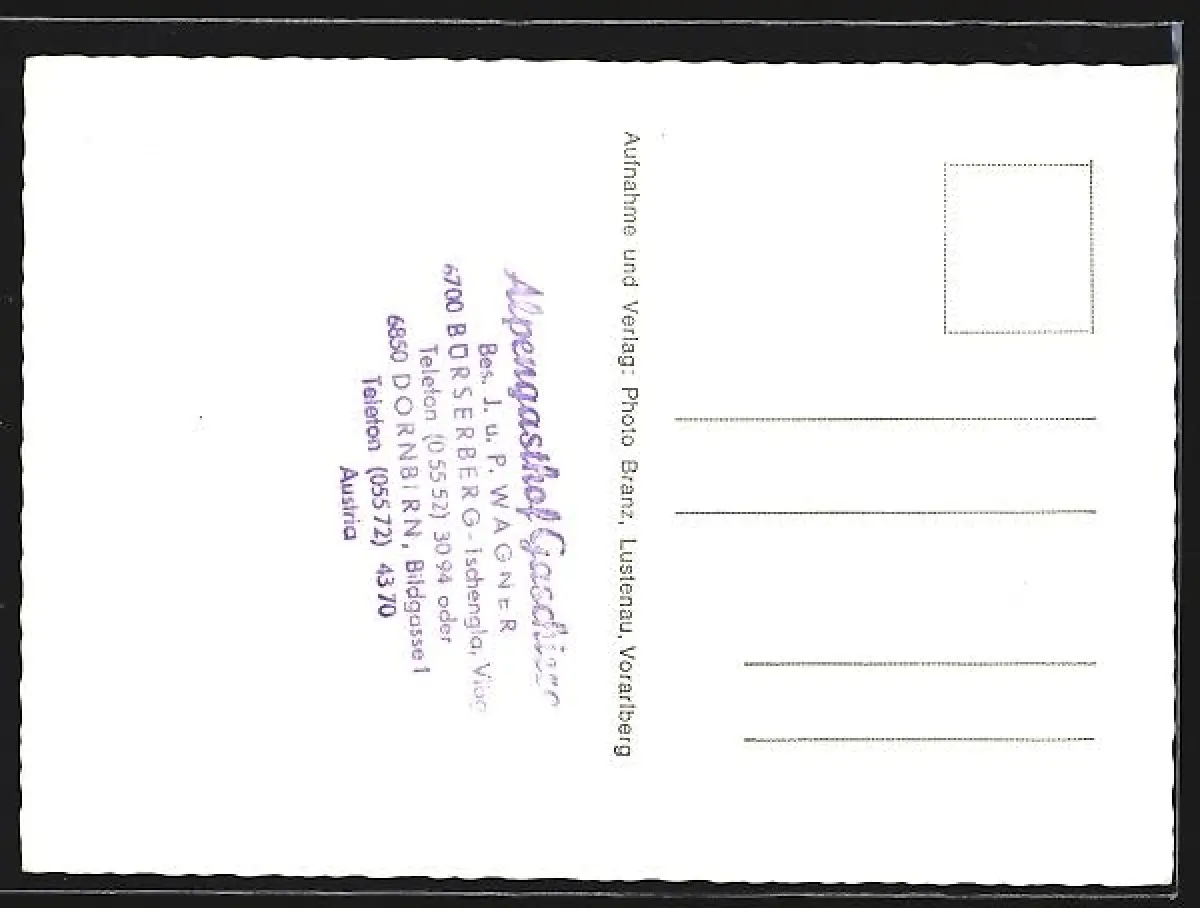 Aufnahme und Verlag: Photo Branz, Lustenau, Vorarlberg
Alpengasthof
Bes. J. u. P. WAGNER
6700 BÜRSERBERG-Tschengla, Vlbg
Telefon (05552) 3094 oder
6850 DORNBIRN, Bildgasse 1
Telefon (05572) 4370
Austria